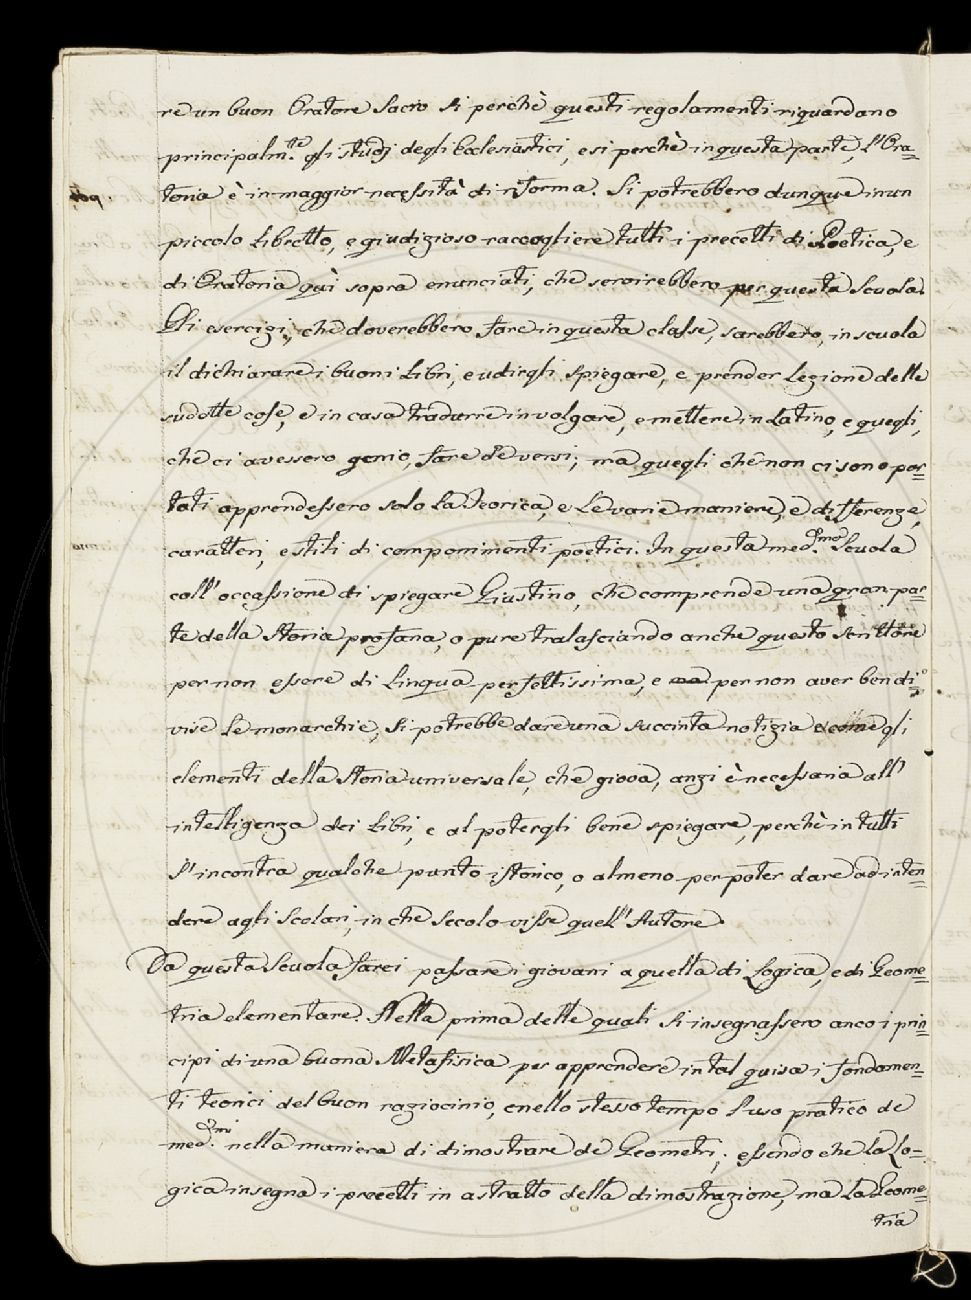 re un buon Oratore Sacro si perchè questi regolamenti riguardano
principalm.te gli studj degli Ecclesiastici, e si perchè in questa parte, l'Ora=
toria è in maggior necessità di riforma. Si potrebbero dunque in un
piccolo Libretto, e giudizioso raccogliere tutti i precetti di Poetica, e
di Oratoria quì sopra enunciati, che servirebbero per questa Scuola.
Gli esercizi, che doverebbero fare in questa classe, sarebbero, in scuola
il dichiarare i buoni Libri, e udirgli spiegare, e prender Lezione delle
sudotte cose, e in casa tradurre in volgare, e mettere in Latino, e quegli,
che ci avessero genio, fare de versi; ma quegli che non ci sono por=
tati apprendessero solo La Teorica, e Le varie maniere, e differenze,
caratteri, e stili di componimenti poetici. In questa med.ma Scuola
coll' occassione di spiegare Giustino, che comprende una gran par=
te della Storia profana, o pure tralasciando anche questo scrittore
per non essere di Lingua perfettissima, e per non aver ben di=
vise Le monarchie, si potrebbe dare una succinta notizia e come gli
elementi della Storia universale, che giova, anzi è necessaria all'
intelligenza dei Libri, e al potergli bene spiegare, perchè in tutti
s' incontra qualche punto istorico, o almeno per poter dare ad inten=
dere agli Scolari, in che secolo visse quell' Autore.
Da questa Scuola farei passare i giovani a quella di Logica, e di Geome=
tria elementare. Nella prima delle quali si insegnassero anco i prin=
cipi di una buona Metafisica per apprendere in tal guisa i fondamen=
ti teorici del buon raziocinio, e nello stesso tempo l'uso pratico de
med.mi nella maniera di dimostrare de Geometri; essendo che La Lo=
gica insegna i precetti in astratto della dimostrazione, ma La Geome=
tria